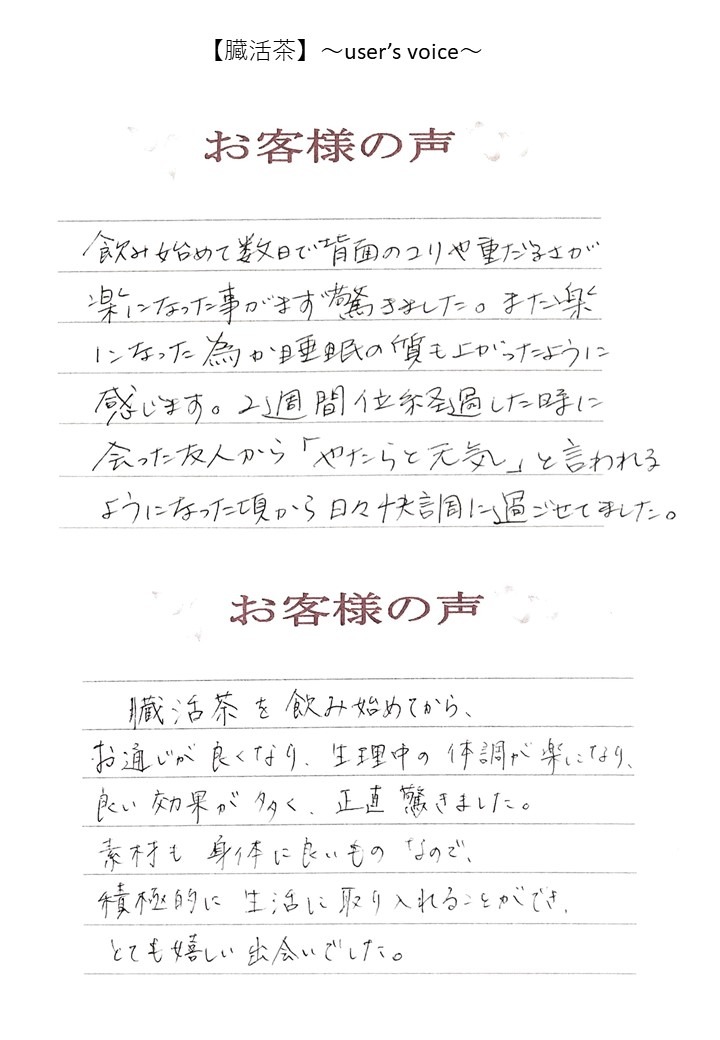 【臓活茶】～user's voice～
お客様の声
飲み始めて数日で背面のコリや重だるさが
楽になった事がまず驚きました。また楽
になった為か睡眠の質も上がったように
感じます。2週間位経過した時に
会った友人から「やたらと元気」と言われる
ようになった頃から日々快調に過ごせてました。
お客様の声
臓活茶を飲み始めてから、
お通じが良くなり、生理中の体調が楽になり、
良い効果が多く、正直驚きました。
素材も身体に良いものなので、
積極的に生活に取り入れることができ、
とても嬉しい出会いでした。